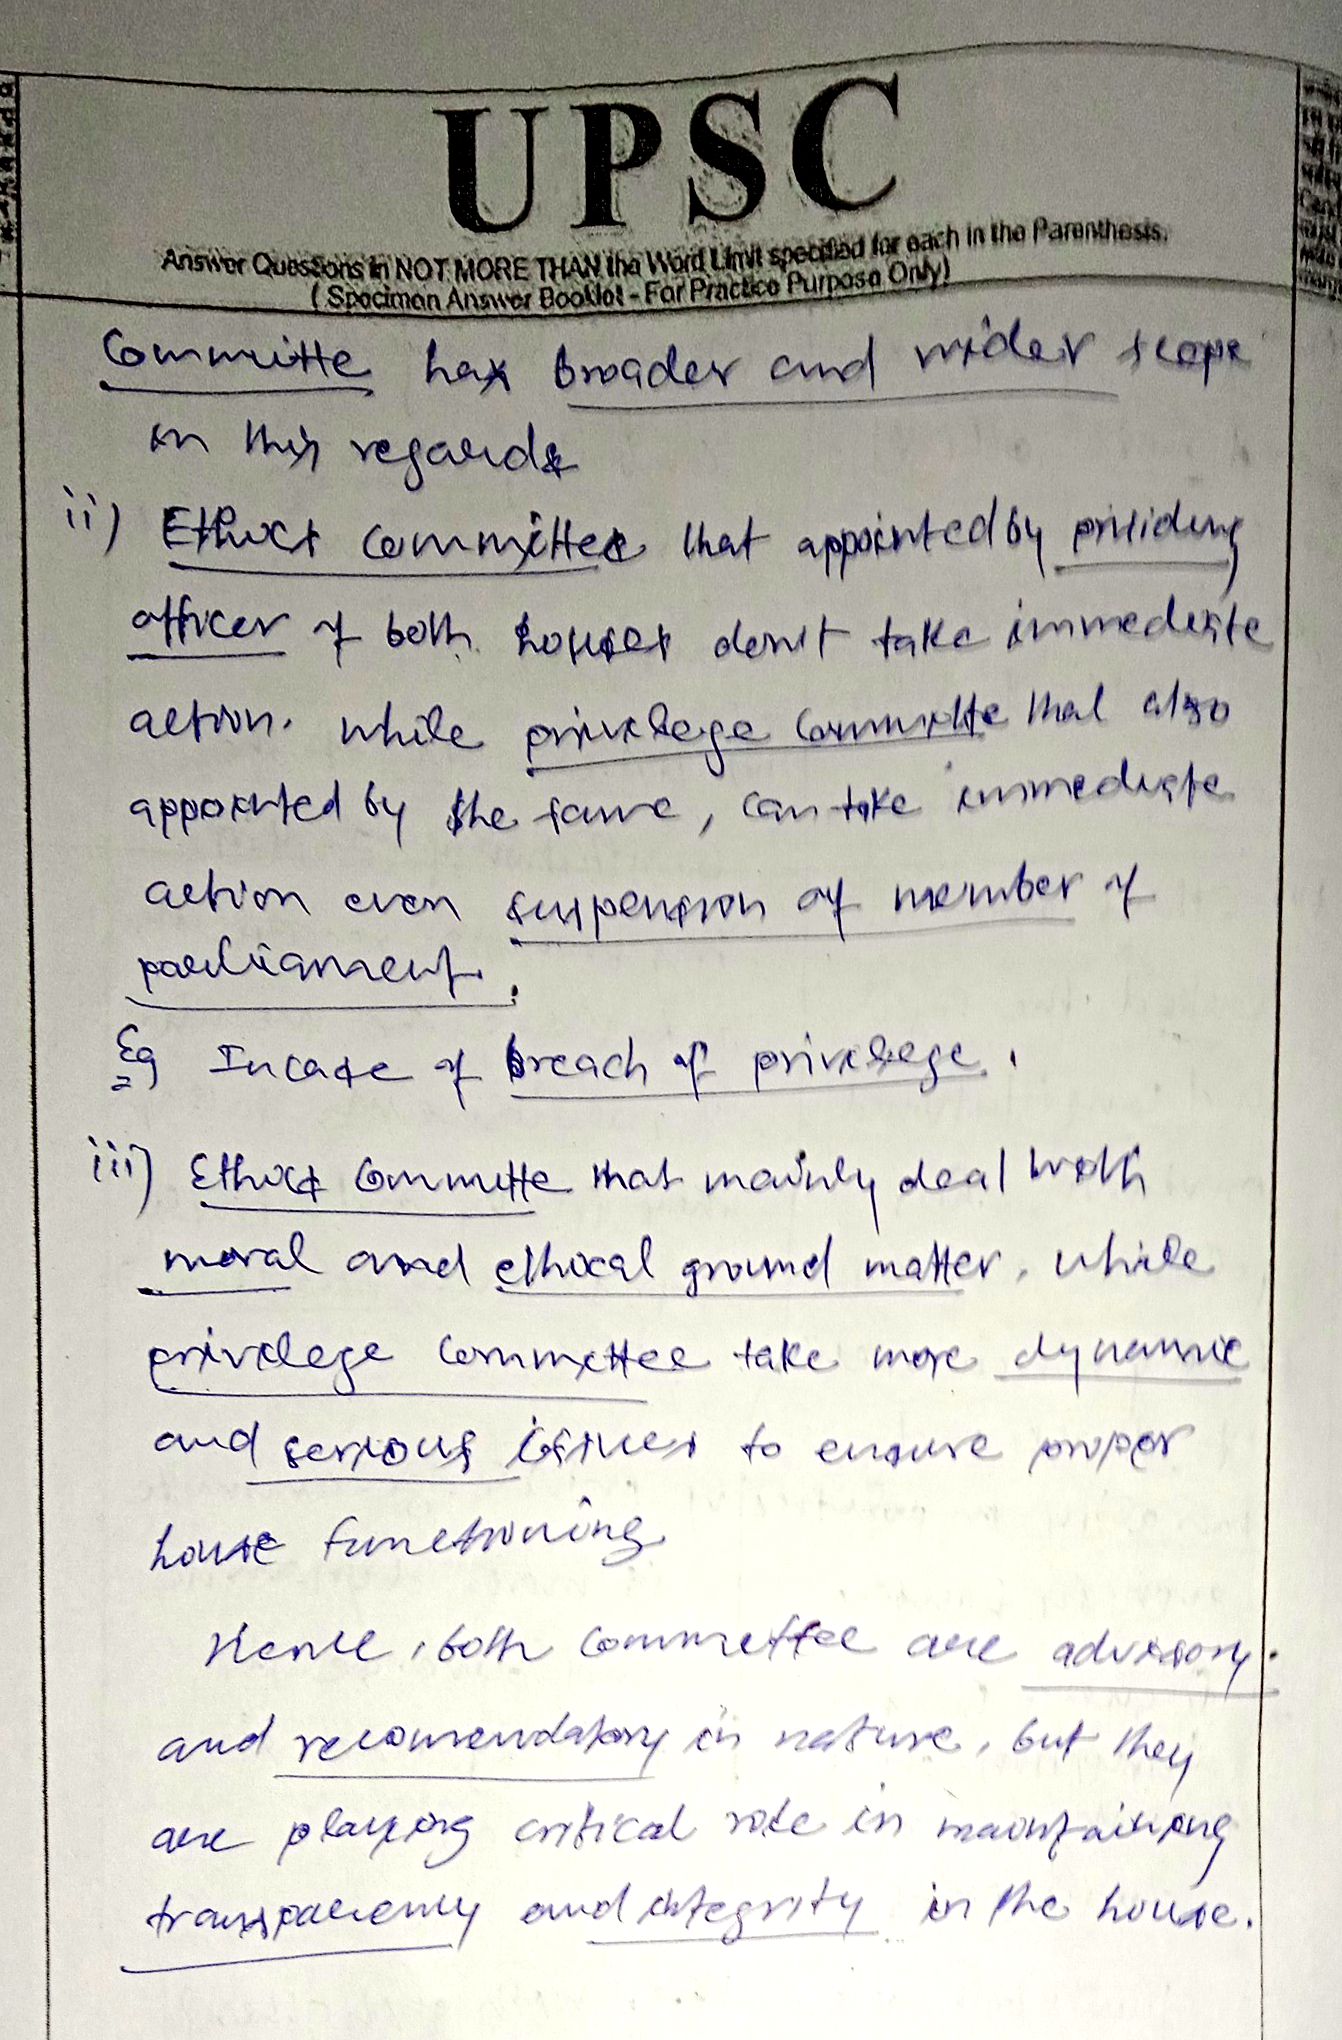 UPSC
Answer Questions in NOT MORE THAN the Word Limit specified for each in the Parenthesis.
( Specimen Answer Booklet - For Practice Purpose Only)
Committe has broader and wider scope
in this regards
ii) Ethics committee that appointed by presiding
officer of both houses don't take immediate
action. while privilege Committe that also
appointed by the same, can take immediate
action even suspension of member of
parliament.
Eg Incase of breach of privilege.
iii) Ethics Committe that mainly deal with
moral and ethical ground matter, while
privilege committee take more dynamic
and serious issues to ensure proper
house functioning
Hence, both committee are advisory.
and recomendatory in nature, but they
are playing critical role in maintaining
transparency and integrity in the house.